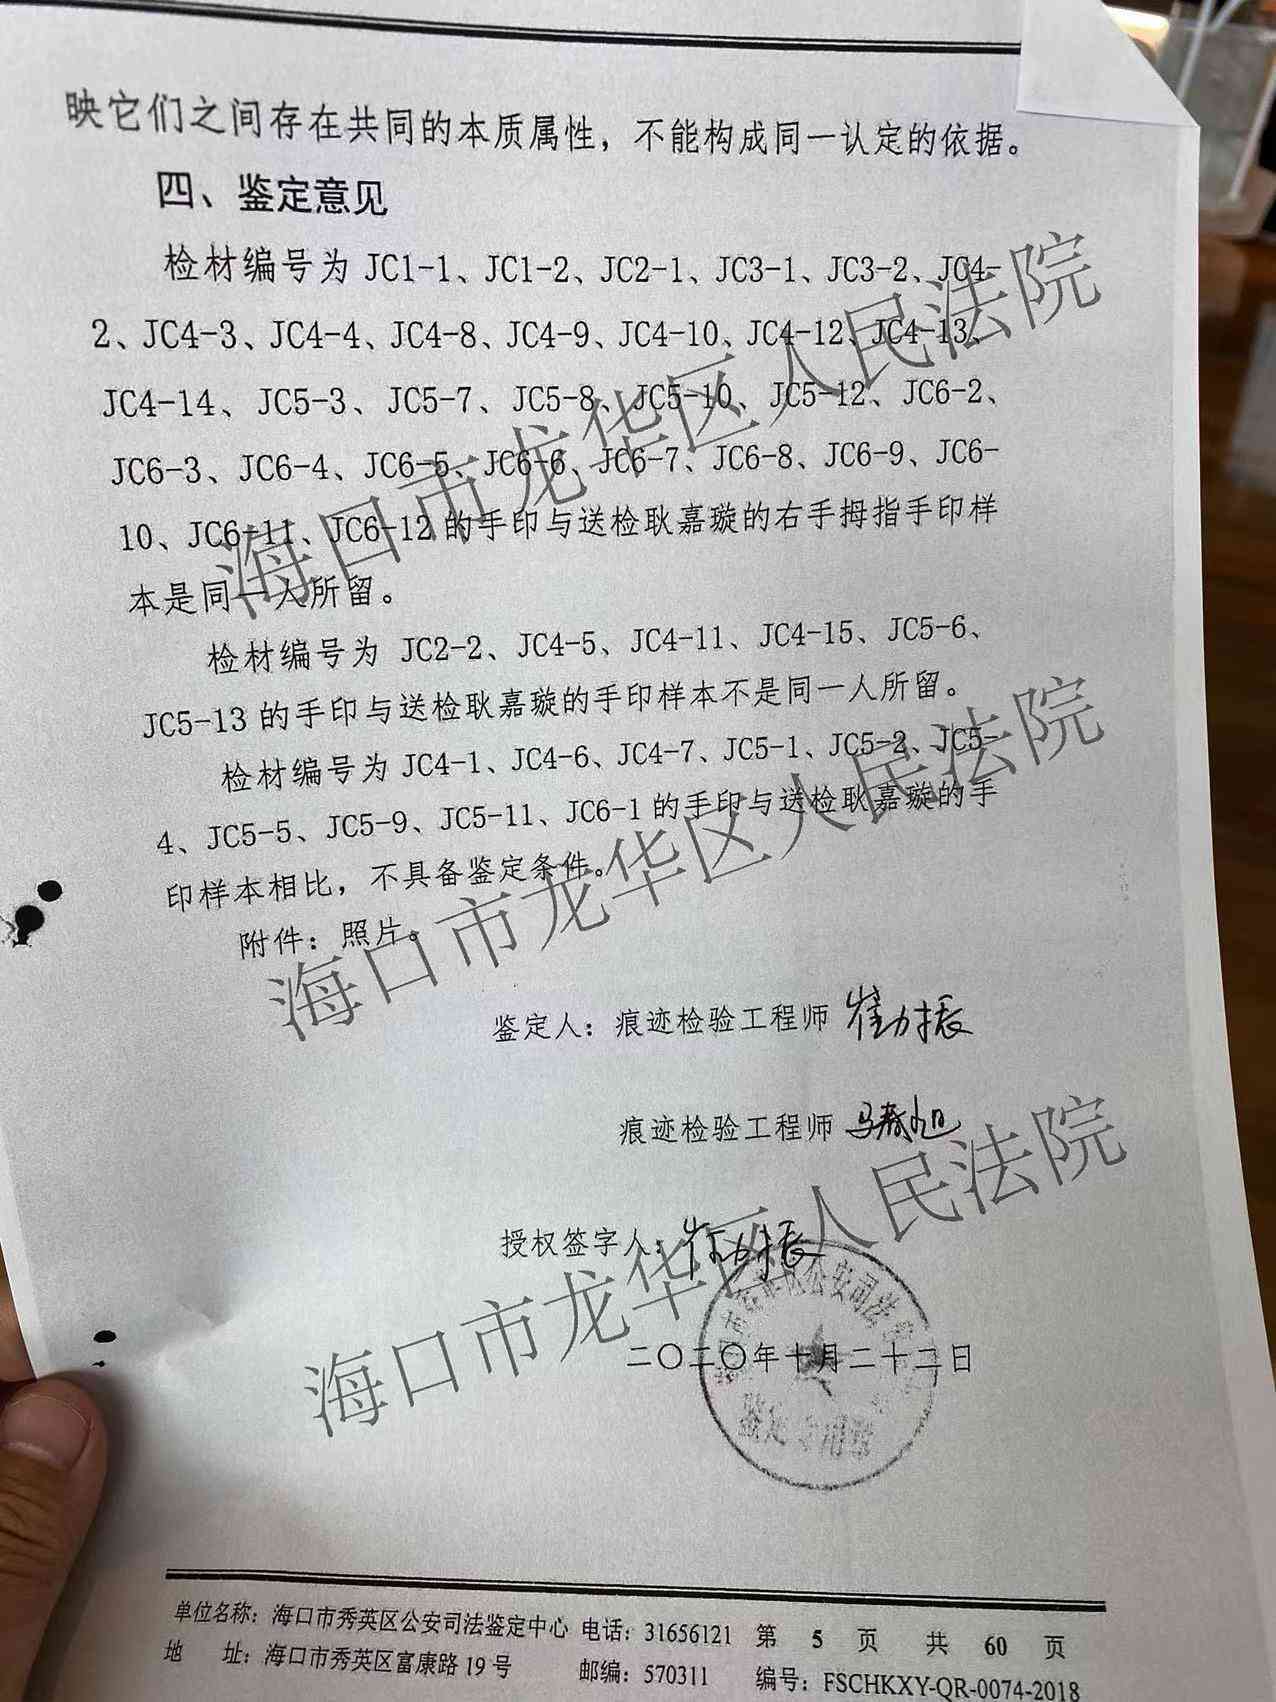 映它们之间存在共同的本质属性，不能构成同一认定的依据。
四、鉴定意见
检材编号为 JC1-1、JC1-2、JC2-1、JC3-1、JC3-2、JC4-
2、JC4-3、JC4-4、JC4-8、JC4-9、JC4-10、JC4-12、JC4-13、
JC4-14、JC5-3、JC5-7、JC5-8、JC5-10、JC5-12、JC6-2、
JC6-3、JC6-4、JC6-5、JC6-6、JC6-7、JC6-8、JC6-9、JC6-
10、JC6-11、JC6-12 的手印与送检耿嘉璇的右手拇指手印样
本是同一人所留。
检材编号为 JC2-2、JC4-5、JC4-11、JC4-15、JC5-6、
JC5-13 的手印与送检耿嘉璇的手印样本不是同一人所留。
检材编号为 JC4-1、JC4-6、JC4-7、JC5-1、JC5-2、JC5-
4、JC5-5、JC5-9、JC5-11、JC6-1 的手印与送检耿嘉璇的手
印样本相比，不具备鉴定条件。
附件：照片。
鉴定人：痕迹检验工程师 崔力振
痕迹检验工程师 马春旭
授权签字人：崔力振
二〇二〇年十月二十二日
公安司法
鉴定专用章
单位名称：海口市秀英区公安司法鉴定中心 电话：31656121 第 5 页 共 60 页
地 址：海口市秀英区富康路 19 号 邮编：570311 编号：FSCHKXY-QR-0074-2018
海口市龙华区人民法院
海口市龙华区人民法院
海口市龙华区人民法院